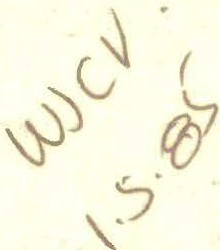 WCV
1.5.85